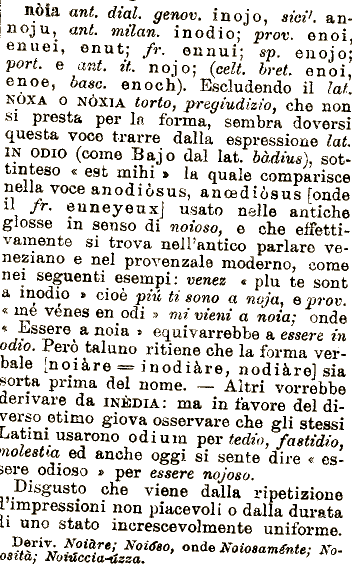 nòia ant. dial. genov. inojo, sicil. an-
noju, ant. milan. inodio; prov. enoi,
enuei, enut; fr. ennui; sp. enojo;
port. e ant. it. nojo; (celt. bret. enoi,
enoe, basc. enoch). Escludendo il lat.
NÒXA o NÒXIA torto, pregiudizio, che non
si presta per la forma, sembra doversi
questa voce trarre dalla espressione lat.
IN ODIO (come Bajo dal lat. bàdius), sot-
tinteso « est mihi » la quale comparisce
nella voce anodiòsus, anœdiòsus [onde
il fr. enneyeux] usato nelle antiche
glosse in senso di noioso, e che effetti-
vamente si trova nell'antico parlare ve-
neziano e nel provenzale moderno, come
nei seguenti esempi: venez « plu te sont
a inodio » cioè piú ti sono a noja, e prov.
« mé vénes en odi » mi vieni a noia; onde
« Essere a noia » equivarrebbe a essere in
odio. Però taluno ritiene che la forma ver-
bale [noiàre = inodiàre, nodiàre] sia
sorta prima del nome. — Altri vorrebbe
derivare da INÈDIA: ma in favore del di-
verso etimo giova osservare che gli stessi
Latini usarono odium per tedio, fastidio,
molestia ed anche oggi si sente dire « es-
sere odioso » per essere nojoso.
Disgusto che viene dalla ripetizione
d'impressioni non piacevoli o dalla durata
di uno stato increscevolmente uniforme.
Deriv. Noiàre; Noióso, onde Noiosaménte; No-
iosità; Noiúccia-úzza.